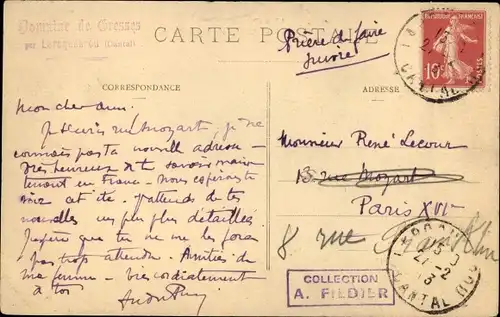 Domaine de Gresses
par (Cantal)
CARTE POSTALE
Prière de faire
suivre
CORRESPONDANCE
ADRESSE
10c
Mon cher ami.
rue Mozart, je ne
connais pas ta nouvelle adresse
très heureux de te savoir main
tenant en France - nous espérons te
voir cet été. J'attends de tes
nouvelles un peu plus détaillées.
J'espère que tu ne me les feras
pas trop attendre. Amitiés de
ma femme - bien cordialement
à toi
Monsieur René Lecour
13 rue Mozart
Paris XVI
8 rue
COLLECTION
A. FILDIER
CANTAL